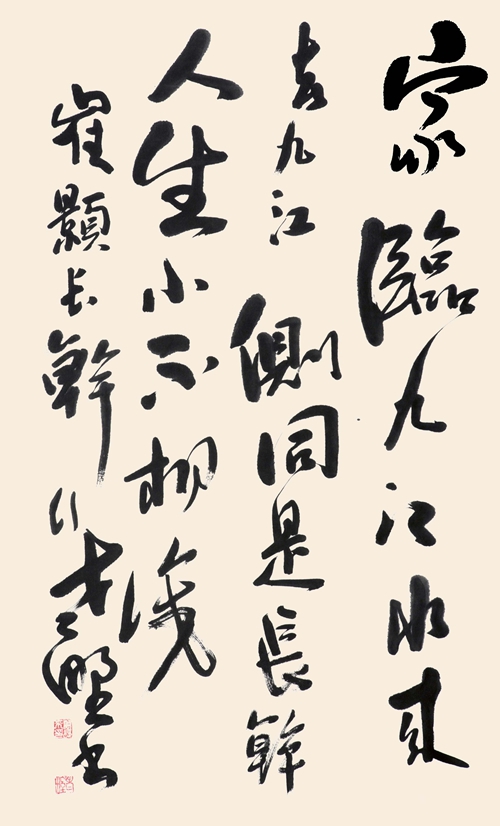 家臨九江水來
去九江側同是長幹
人生小不相識
崔顥长幹行書